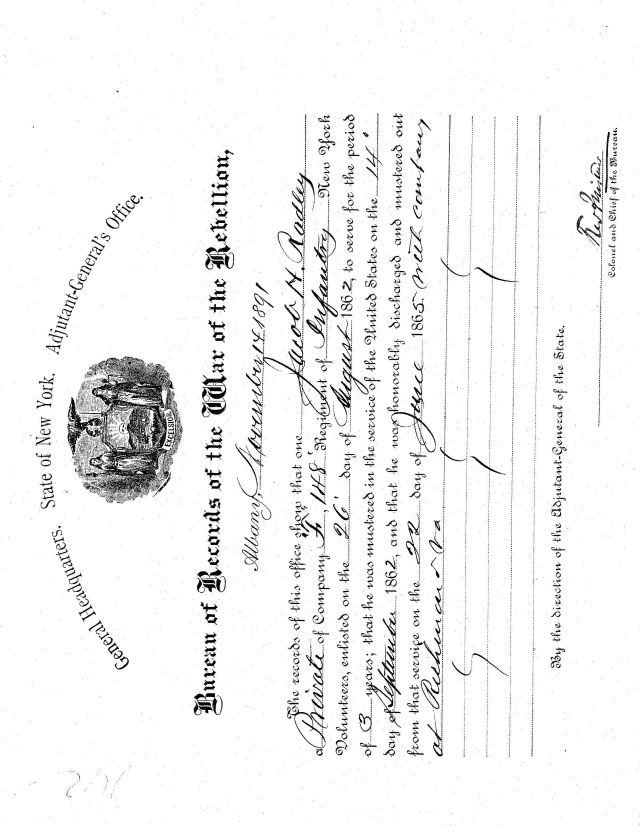 General Headquarters. State of New York. Adjutant-General's Office.
EXCELSIOR
Bureau of Records of the War of the Rebellion,
Albany, November 14 1891
The records of this office show that one Jacob H. Radley
a Private of Company F, 148' Regiment of Infantry New York
Volunteers, enlisted on the 26' day of August 1862, to serve for the period
of 3 years; that he was mustered in the service of the United States on the 14'
day of September 1862, and that he was honorably discharged and mustered out
from that service on the 22 day of June 1865. with company
at Richmond Va
By the direction of the Adjutant-General of the State.
Colonel and Chief of the Bureau.